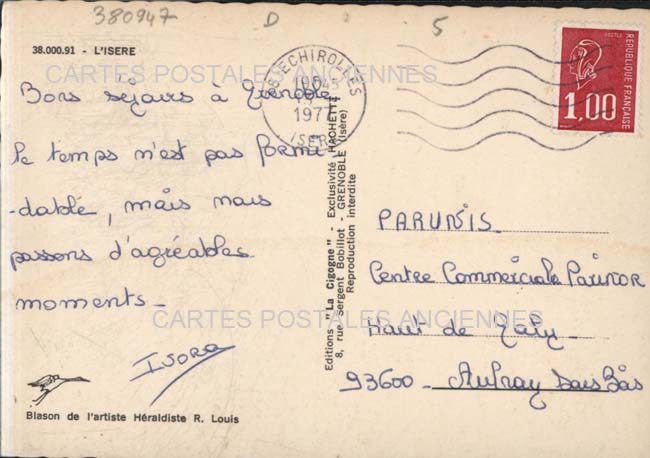 380947 D 5
38.000.91 - L'ISERE
CARTES POSTALES ANCIENNES
Bons séjours à Grenoble
le temps n'est pas formi
-dable, mais nous
passons d'agréables
moments -
CARTES POSTALES ANCIENNES
Blason de l'artiste Héraldiste R. Louis
ECHIROLLES
1977
ISERE
Editions "La Cigogne" - Exclusivité HACHETTE
8, rue Sergent Bobillot - GRENOBLE (Isère)
Reproduction interdite
POSTES
REPUBLIQUE FRANÇAISE
1,00
PARUNIS.
Centre Commerciale Parinor
Haut de
93600 - Aulnay Sous Bois